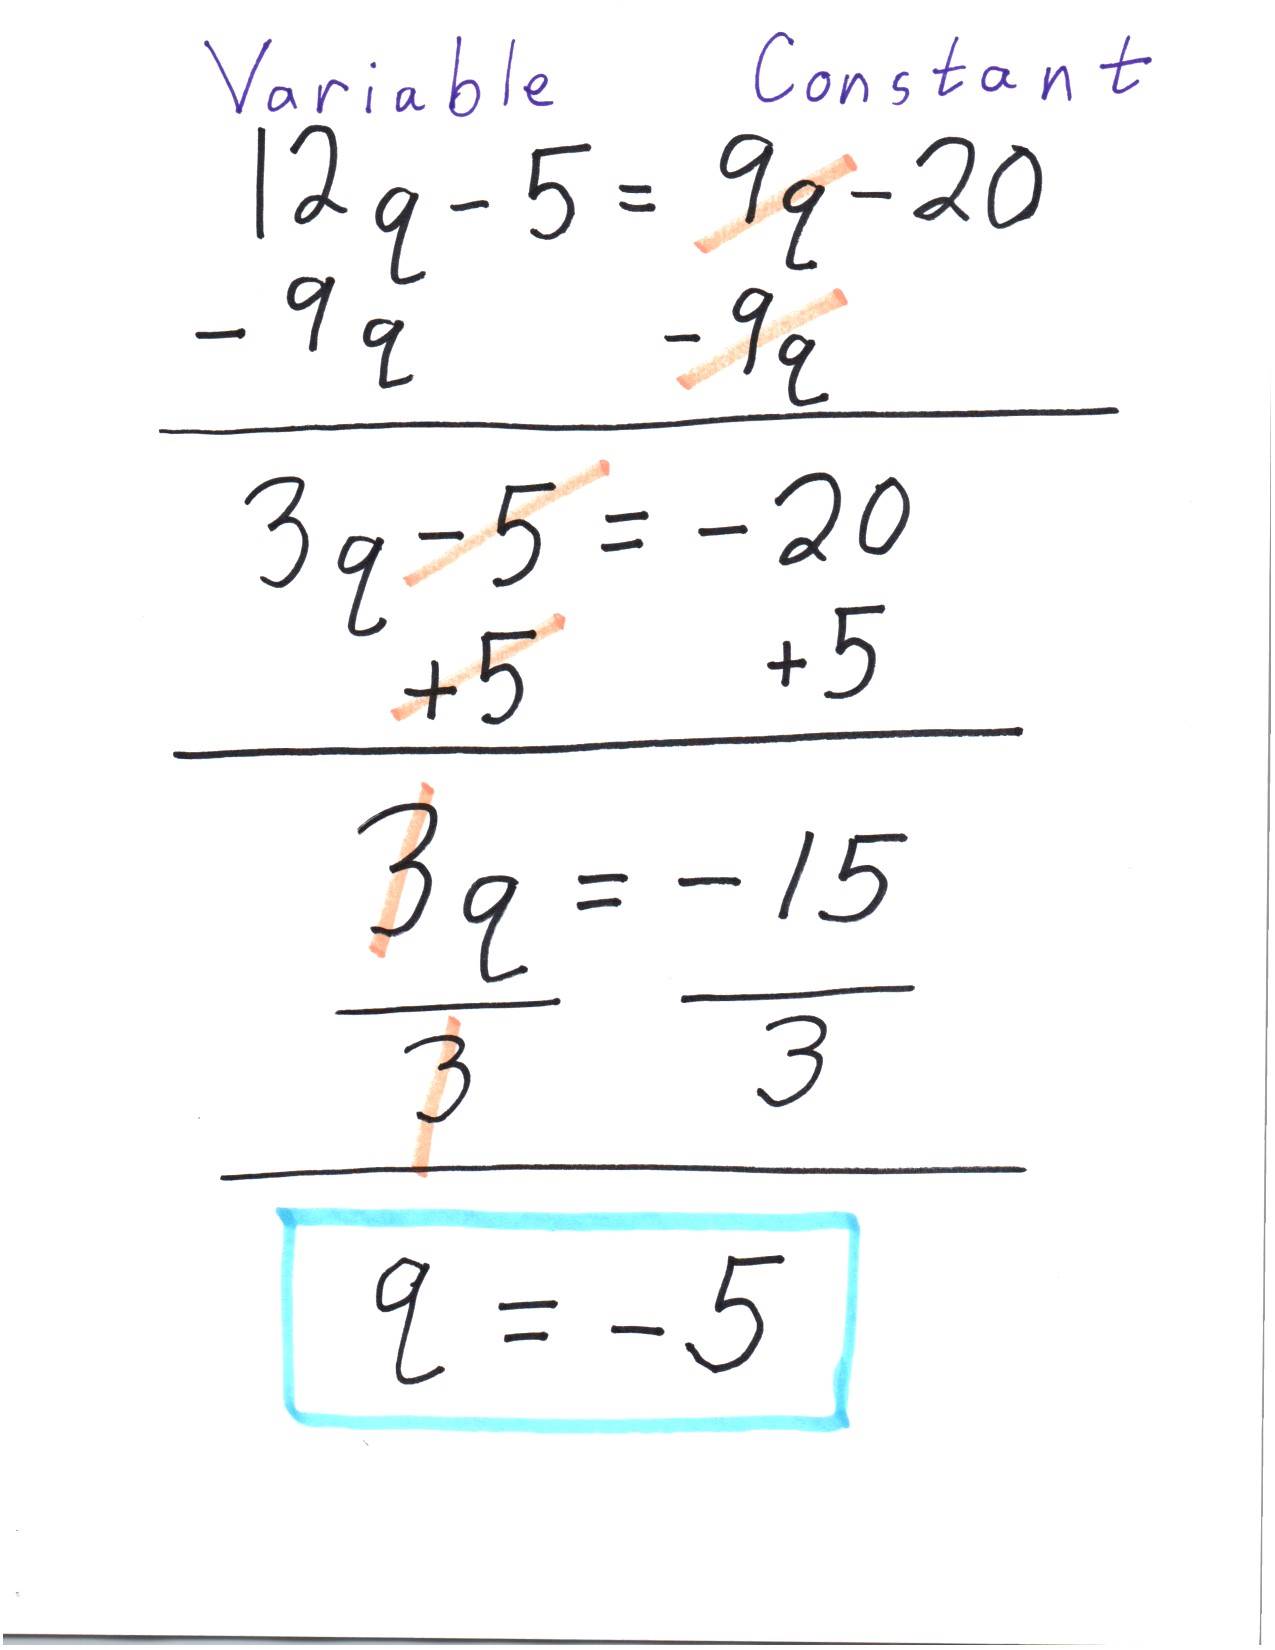 Variable Constant
12q - 5 = 9q - 20
- 9q - 9q
3q - 5 = - 20
+ 5 + 5
3q = - 15
3 3
q = - 5